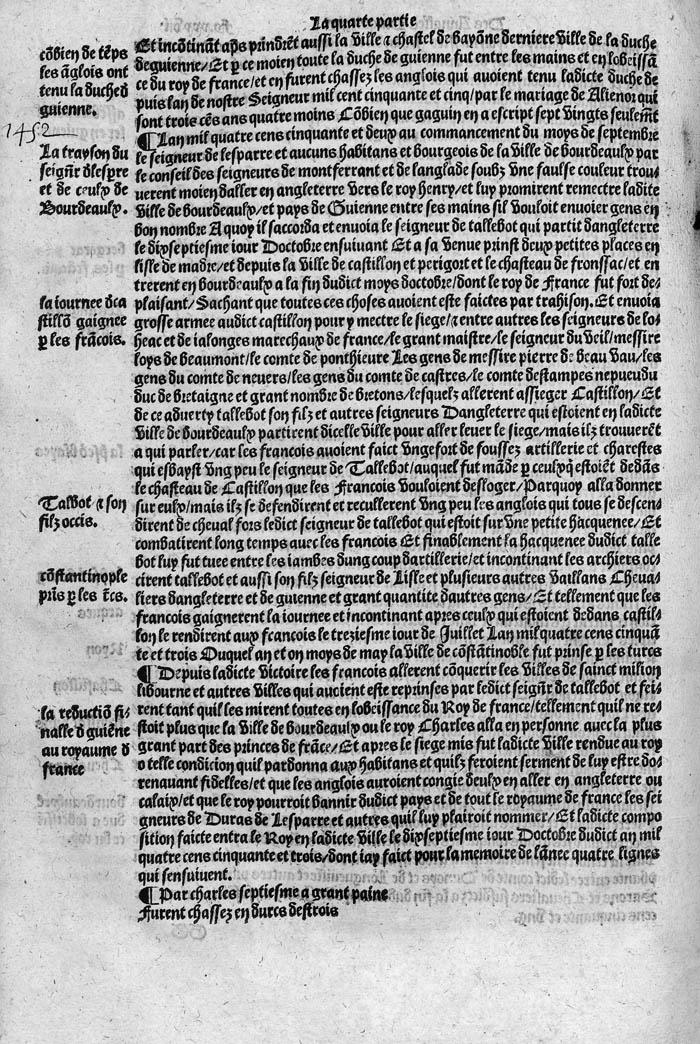 La quarte partie
Et incõtinãt aps prindrẽt aussi la ville ⁊ chastel de bayõne derniere ville de la duche
de guienne/Et p ce moien toute la duche de guienne fut entre les mains et en lobeissã
ce du roy de france/et en furent chassez les anglois qui avoient tenu ladicte duche de
puis lan de nostre Seigneur mil cent cinquante et cinq/par le mariage de Alienor qui
sont trois cẽs ans quatre moens Cõbien que gaguin en a escript sept vingts seulemẽt
¶ Lan mil quatre cens cinquante et deux au commancement du moys de septembre
le seigneur de lesparre et aucuns habitans et bourgeois de la ville de bourdeaulx par
le conseil des seigneurs de montferrant et de langlade soubz vne faulse couleur trou-
uerent moien daller en angleterre vers le roy henry/et luy promirent remectre ladite
ville de bourdeaulx/et pays de Guienne entre ses mains sil vouloit envoier gens en
bon nombre A quoy il saccorda et envoia le seigneur de tallebot qui partit dangleterre
le dixseptiesme iour Doctobre ensuivant Et a sa venue prinst deux petites places en
lisle de madre/et depuis la ville de castillon et perigort et le chasteau de fronssac/et en
trerent en bourdeaulx a la fin dudict moys doctobre/dont le roy de France fut fort de-
plaisant/Sachant que toutes ces choses avoient este faictes par trahison. Et envoia
grosse armee audict castillon pour y mectre le siege/⁊ entre autres les seigneurs de lo-
heac et de ialonges marechaux de france/le grant maistre/le seigneur du veil/messire
loys de beaumont/le comte de ponthieure Les gens de messire pierre de beau vau/les
gens du comte de nevers/les gens du comte de castres/le comte destampes nepueu du
duc de bretaigne et grant nombre de bretons/lesquelz allerent assieger Castillon/Et
de ce adverty tallebot son filz et autres seigneurs Dangleterre qui estoient en ladicte
ville de bourdeaulx partirent dicelle ville pour aller lever le siege/mais ilz trouuerẽt
a qui parler/car les francois avoient faict vng fort de foussez artillerie et charestes
qui esbayst vng peu le seigneur de Tallebot/auquel fut mãde p ceulx q̃ estoiẽt dedãs
le chasteau de Castillon que les Francois vouloient desloger/Parquoy alla donner
sur eulx/mais ilz se defendirent et recullerent vng peu les anglois qui tous se descen-
dirent de cheval fors ledict seigneur de tallebot qui estoit sur vne petite hacquenee/Et
combatirent long temps avec les francois Et finablement la hacquenee dudict talle
bot luy fut tuee entre les iambes dung coup dartillerie/et incontinant les archiers oc-
cirent tallebot et aussi son filz seigneur de Lisle et plusieurs autres vaillans Cheva-
liers dangleterre et de guienne et grant quantite dautres gens/Et tellement que les
francois gaignerent la iournee et incontinant apres ceulx qui estoient dedans castil-
lon le rendirent aux francois le treziesme iour de Juillet Lan mil quatre cens cinquã
te et trois Ouquel an et on moys de may la ville de cõstãtinoble fut prinse p les turcs
¶ Depuis ladicte victoire les francois allerent cõquerir les villes de sainct milion
libourne et autres villes qui avoient este reprinses par ledict seignr̃ de tallebot et fei-
rent tant quil les mirent toutes en lobeissance du Roy de france/tellement quil ne re-
stoit plus que la ville de bourdeaulx ou le roy Charles alla en personne avec la plus
grant part des princes de frãce/Et apres le siege mis fut ladicte ville rendue au roy
o telle condicion quil pardonna aux habitans et quilz feroient serment de luy estre do-
renauant fidelles/et que les anglois auroient congie deulx en aller en angleterre ou
calaix/et que le roy pourroit bannir dudict pays et de tout le royaume de france les sei
gneurs de Duras de Lesparre et autres quil luy plairoit nommer/Et ladicte compo
sition faicte entra le Roy en ladicte ville le dixseptiesme iour Doctobre dudict an mil
quatre cens cinquante et trois/dont iay faict pour la memoire de lãnee quatre lignes
qui sensuiuent.
¶ Par charles septiesme a grant paine
Furent chassez en durcs destrois
cõbien de tẽps
les ãglois ont
tenu la duche d
guienne.
1452
La trayson du
seignr̃ dlespre
et de ceulx de
Bourdeaulx.
la iournee d ca
stillõ gaignee
p les frãcois.
Talbot ⁊ son
filz occis.
cõstantinople
prĩs p les t̃cs.
la reductiõ fi-
nalle d guiẽne
au royaume d
france